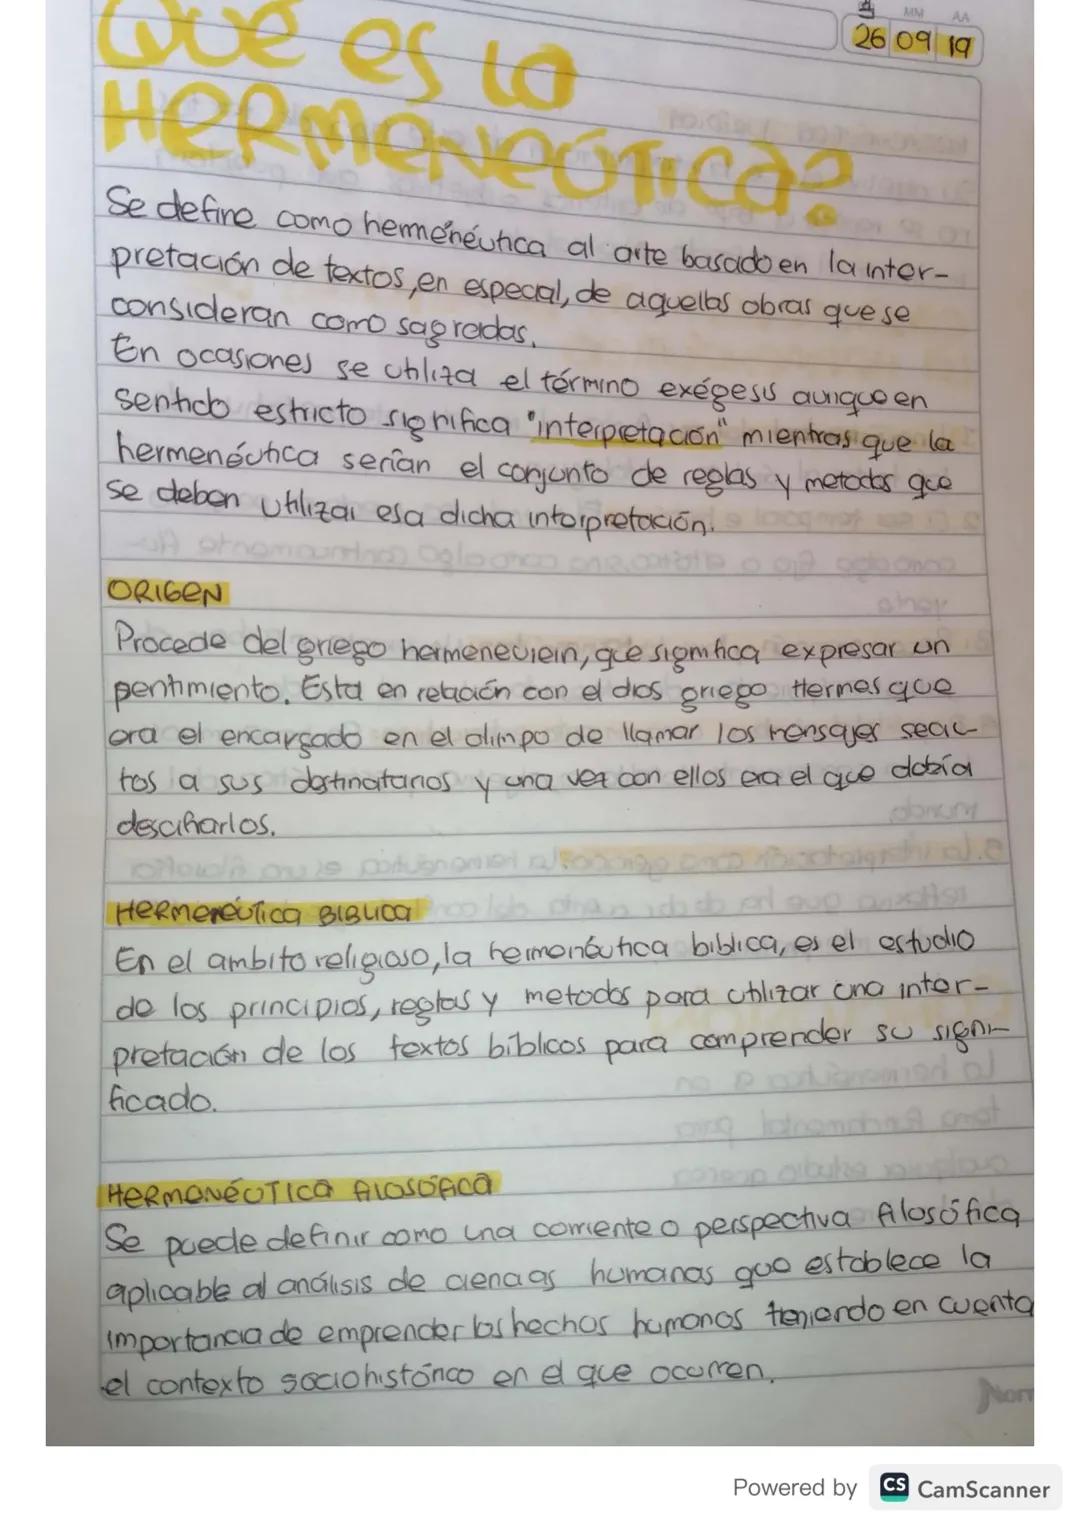 MM AA
26 09 19
Qué es la
HERMENEÚTICA?
Se define como hermenéutica al arte basado en la inter-
pretación de textos, en especial, de aquellas obras que se
consideran como sagradas.
En ocasiones se utiliza el término exégesis aunque en
sentido estricto significa "interpretación" mientras que la
hermenéutica serían el conjunto de reglas y metodos que
se deben utilizar esa dicha interpretación.
ORIGEN
Procede del griego hermeneviein, que significa expresar un
pentimiento. Esta en relación con el dios griego Hermes que
era el encargado en el olimpo de llamar los mensajes secre-
tos a sus destinatarios y una vez con ellos era el que debía
descifrarlos.
HERMENEÚTICA BIBLICA
En el ambito religioso, la hermenéutica biblica, es el estudio
de los principios, reglas y metodos para utilizar una inter-
pretación de los textos bíblicos para comprender su signi-
ficado.
HERMENÉUTICA FILOSÓFICA
Se puede definir como una corriente o perspectiva filosófica
aplicable al análisis de ciencias humanas que establece la
importancia de emprender los hechos humanos teniendo en cuenta
el contexto sociohistórico en el que ocurren.
Norm
Powered by CS CamScanner